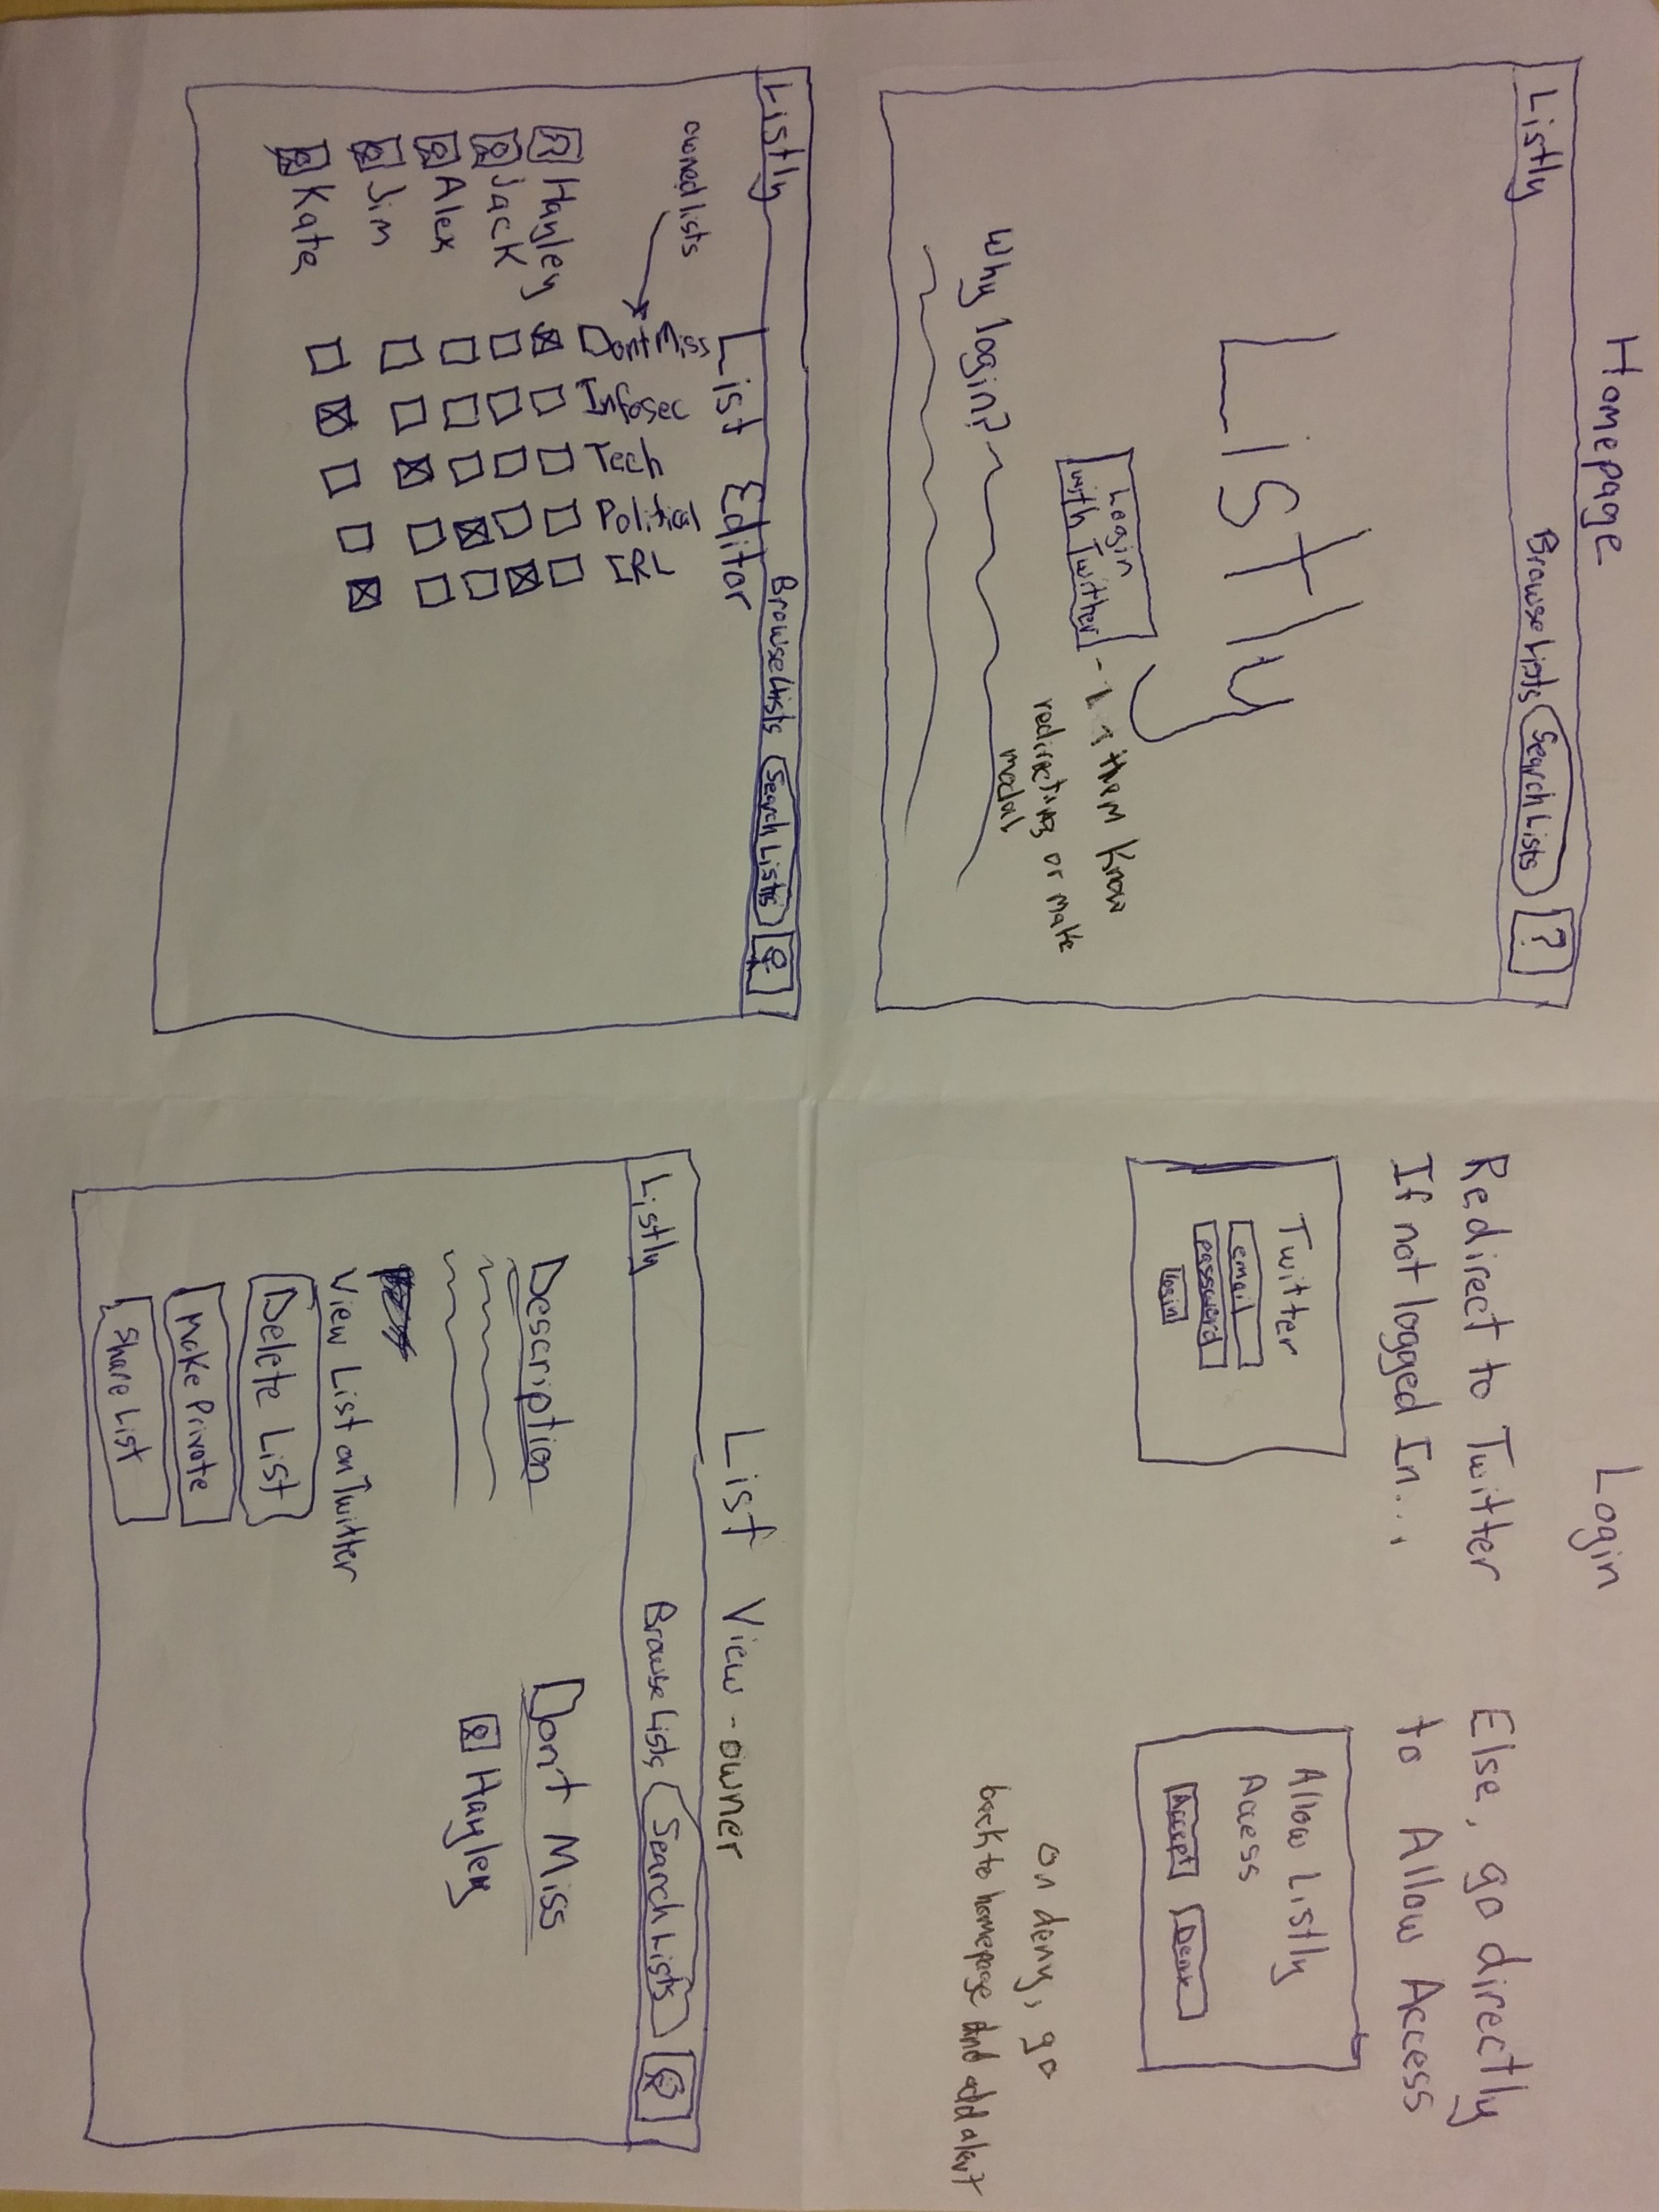 Homepage
Listly
Browse Lists
Search Lists
?
Listly
Login
with Twitter
them know
redirecting or make
modal
Why login?
Login
Redirect to Twitter
If not logged In...
Twitter
email
password
login
Else, go directly
to Allow Access
Allow Listly
Access
Accept
Deny
on deny, go
back to homepage and add alert
List Editor
Listly
Browse Lists
Search Lists
owned lists
Dont Miss
Infosec
Tech
Political
IRL
Hayley
Jack
Alex
Jim
Kate
List View - owner
Listly
Browse Lists
Search Lists
Description
View List on Twitter
Delete List
Make Private
Share List
Dont Miss
Hayley